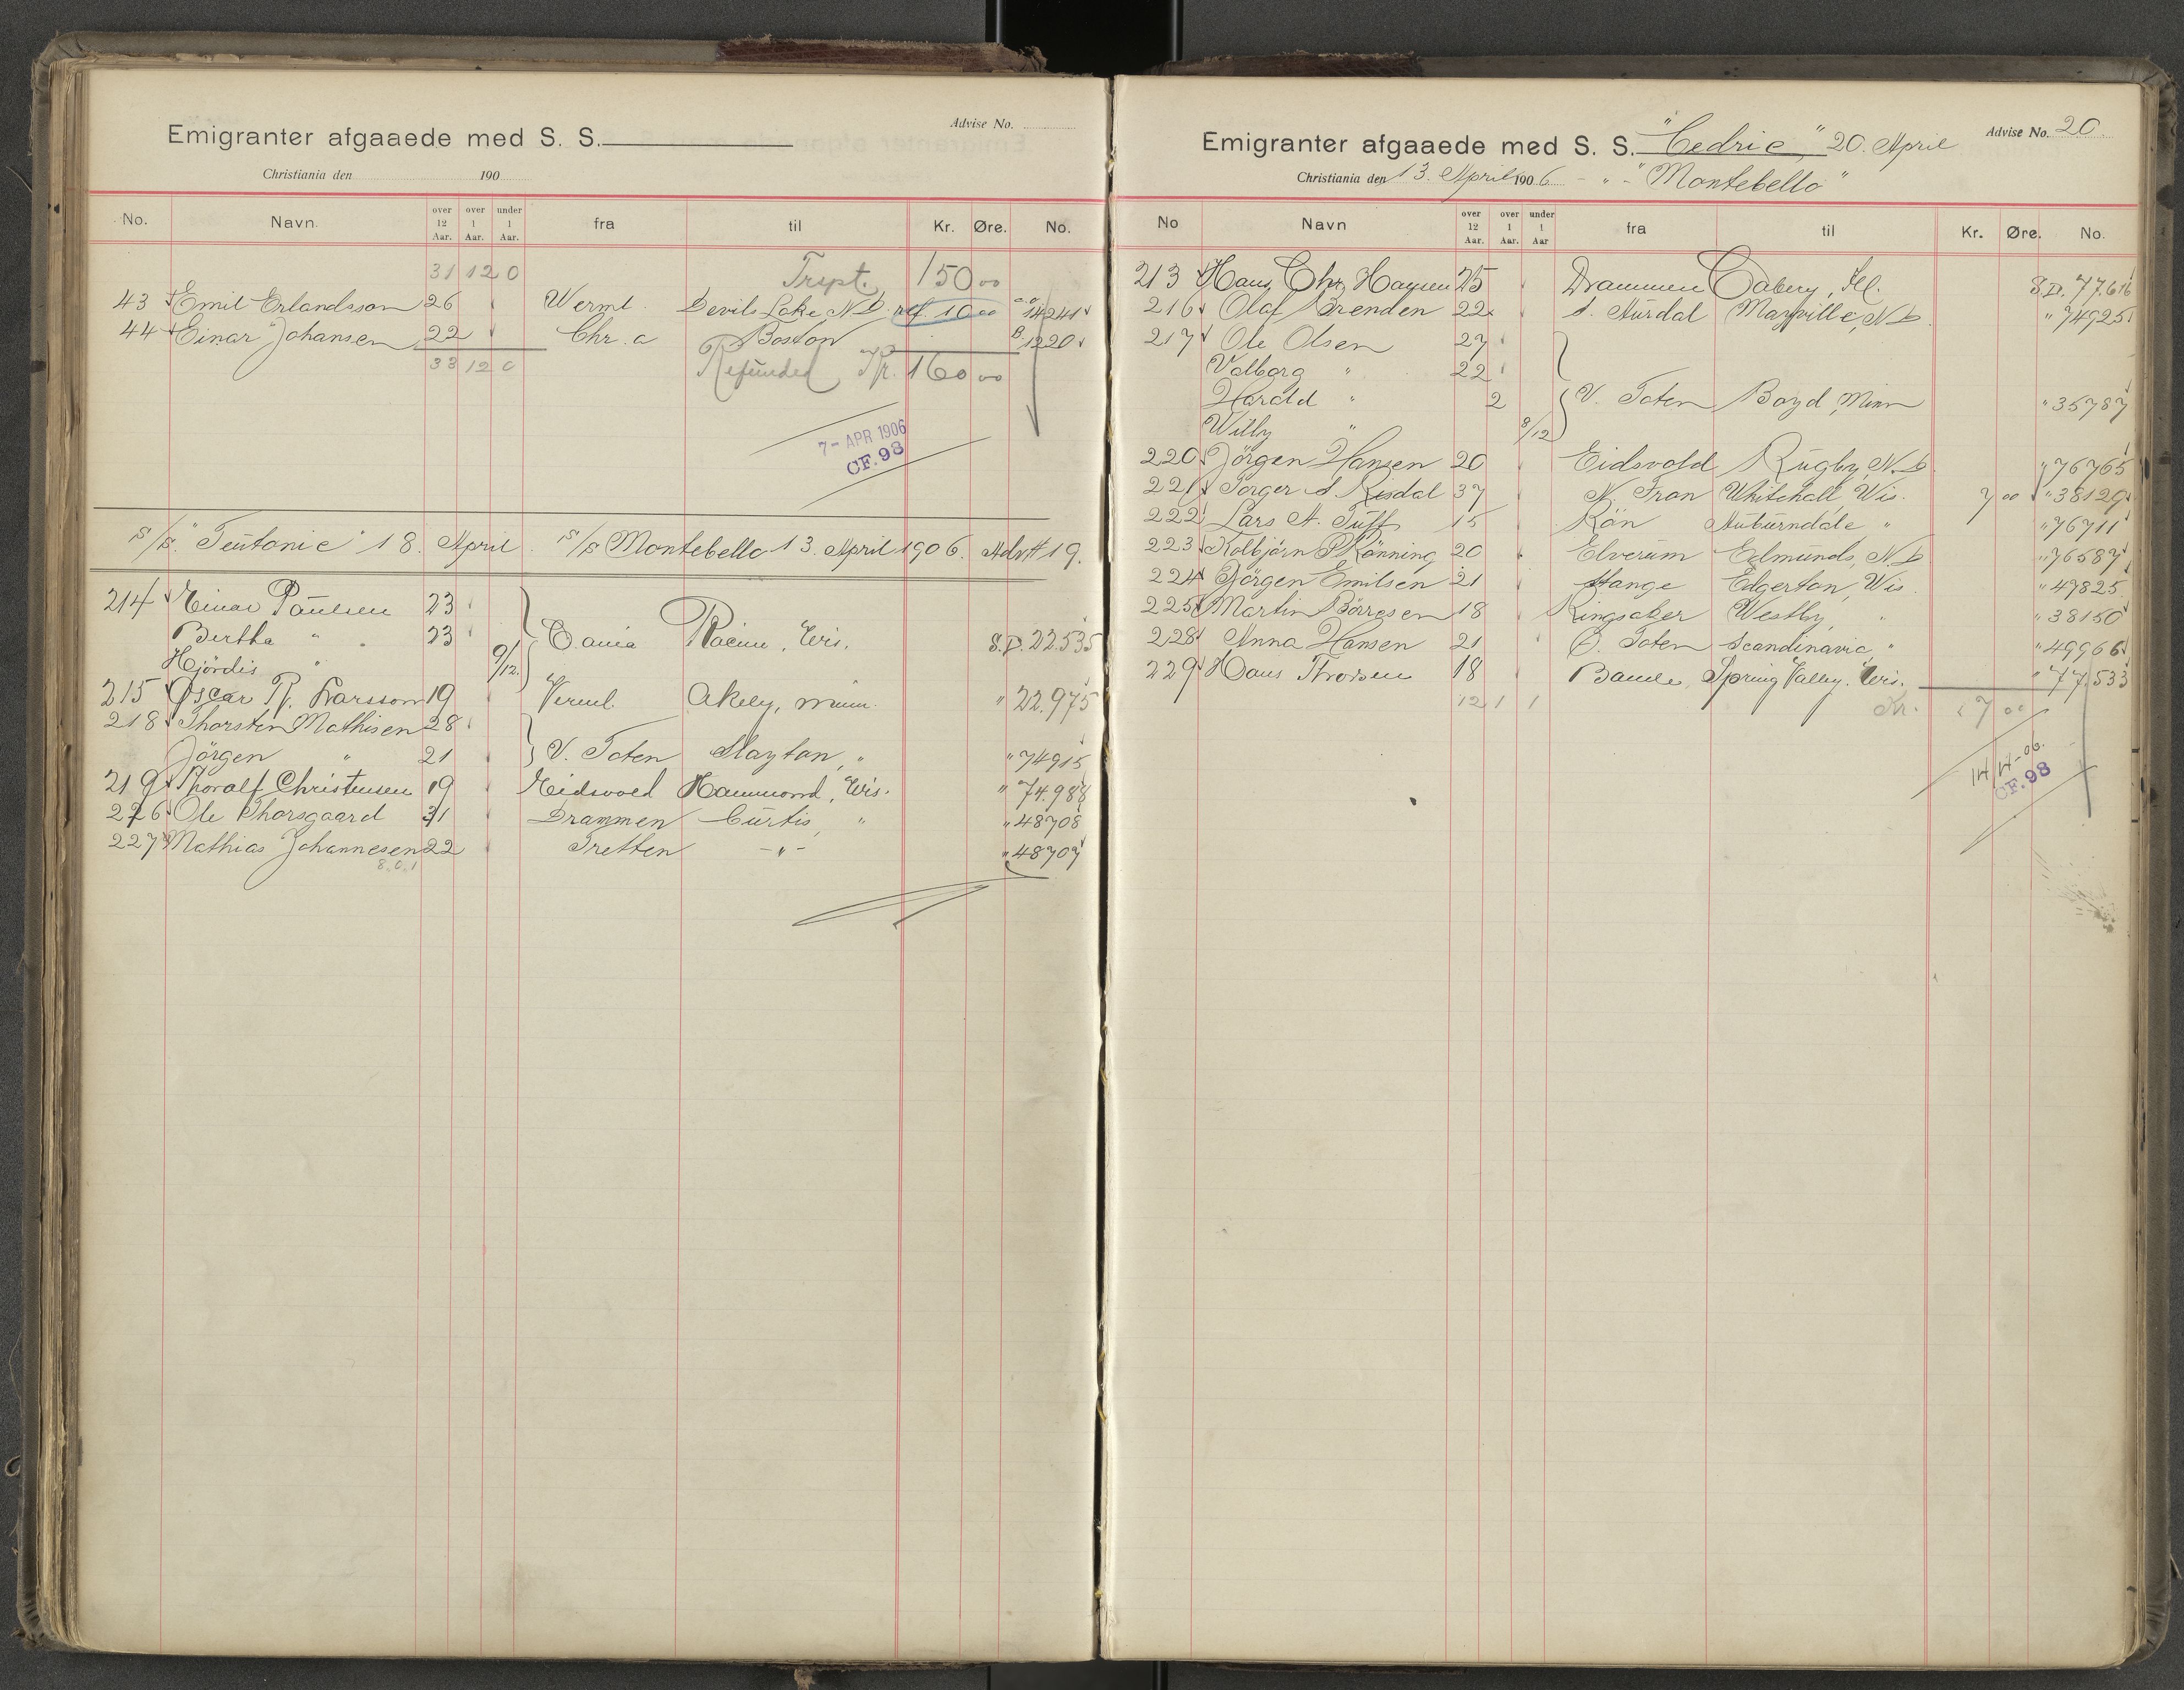 Emigranter afgaaede med S. S.
Advise No.
Christiania den 190
No. Navn. over 12 Aar. over 1 Aar. under 1 Aar. fra til Kr. Øre. No.
31 12 0 Trspt. 150 00
43 Emil Erlandsson 26 Werml. Devils Lake N.D. ref. 10 00 14241
44 Einar Johansen 22 Chr.a Boston B 1220
33 12 0 Refunded Kr. 160 00
7- APR 1906
CF. 98
S/S. "Teutonic" 18. April. S/S Montebello 13. April 1906. Adv # 19.
214 Einar Paulsen 23
Bertha " 23 Racine, Wis. S.D. 22.535
Hjördis " 9/12
215 Oscar Larsson 19 Verml. Akely, Minn. " 22.975
218 Thorsten Mathisen 28
Jörgen " 21 V. Toten Slayton, " " 74915
219 Thoralf Christensen 19 Eidsvold Hammond, Wis. " 74.988
226 Ole Thorsgaard 31 Drammen Curtis, " " 48708
227 Mathias Johannesen 22 Tretten - " - " 48707
8. 0. 1
Emigranter afgaaede med S. S. "Cedric", 20. April
Advise No. 20.
Christiania den 13. April 1906 - " - "Montebello"
No Navn over 12 Aar. over 1 Aar. under 1 Aar fra til Kr. Øre. No.
213 Hans Chr. Hansen 25 Drammen Cabery, Ill. S.D. 77.616
216 Olaf Brenden 22 S. Aurdal Mayville, N.D. " 74925
217 Ole Olsen 27
Valborg " 22
Harald " 2 V. Toten Boyd, Minn " 35787
Willy " 8/12
220 Jörgen Hansen 20 Eidsvold Rugby, N.D. " 76765
221 Torger S. Risdal 37 N. Fron Whitehall, Wis. 7 00 " 38129
222 Lars A. Tuff 15 Rön Auburndale " " 76711
223 Kolbjörn P. Rönning 20 Elverum Edmunds, N.D. " 76587
224 Jörgen Emilsen 21 Stange Edgerton, Wis. " 49825
225 Martin Börresen 18 Ringsaker Westby, " " 38150
228 Anna Hansen 21 Ö. Toten Scandinavia, " " 49966
229 Hans Thorsen 18 Bamle Spring Valley. Wis. " 77.533
12 1 1 Kr. 7 00
14/4-06.
CF. 98